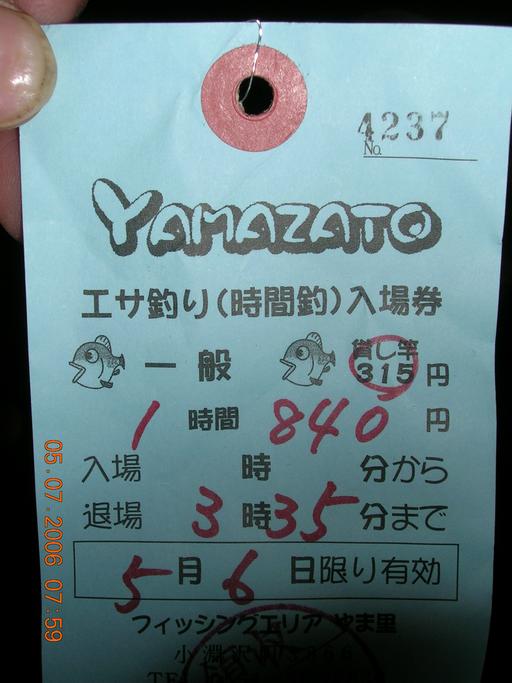 4237
No.
YAMAZATO
エサ釣り(時間釣)入場券
一般 貸し竿 315円
1時間 840円
入場 時 分から
退場 3時35分まで
5月6日限り有効
フィッシングエリア やま里
小淵沢町
05.07.2006 07:59